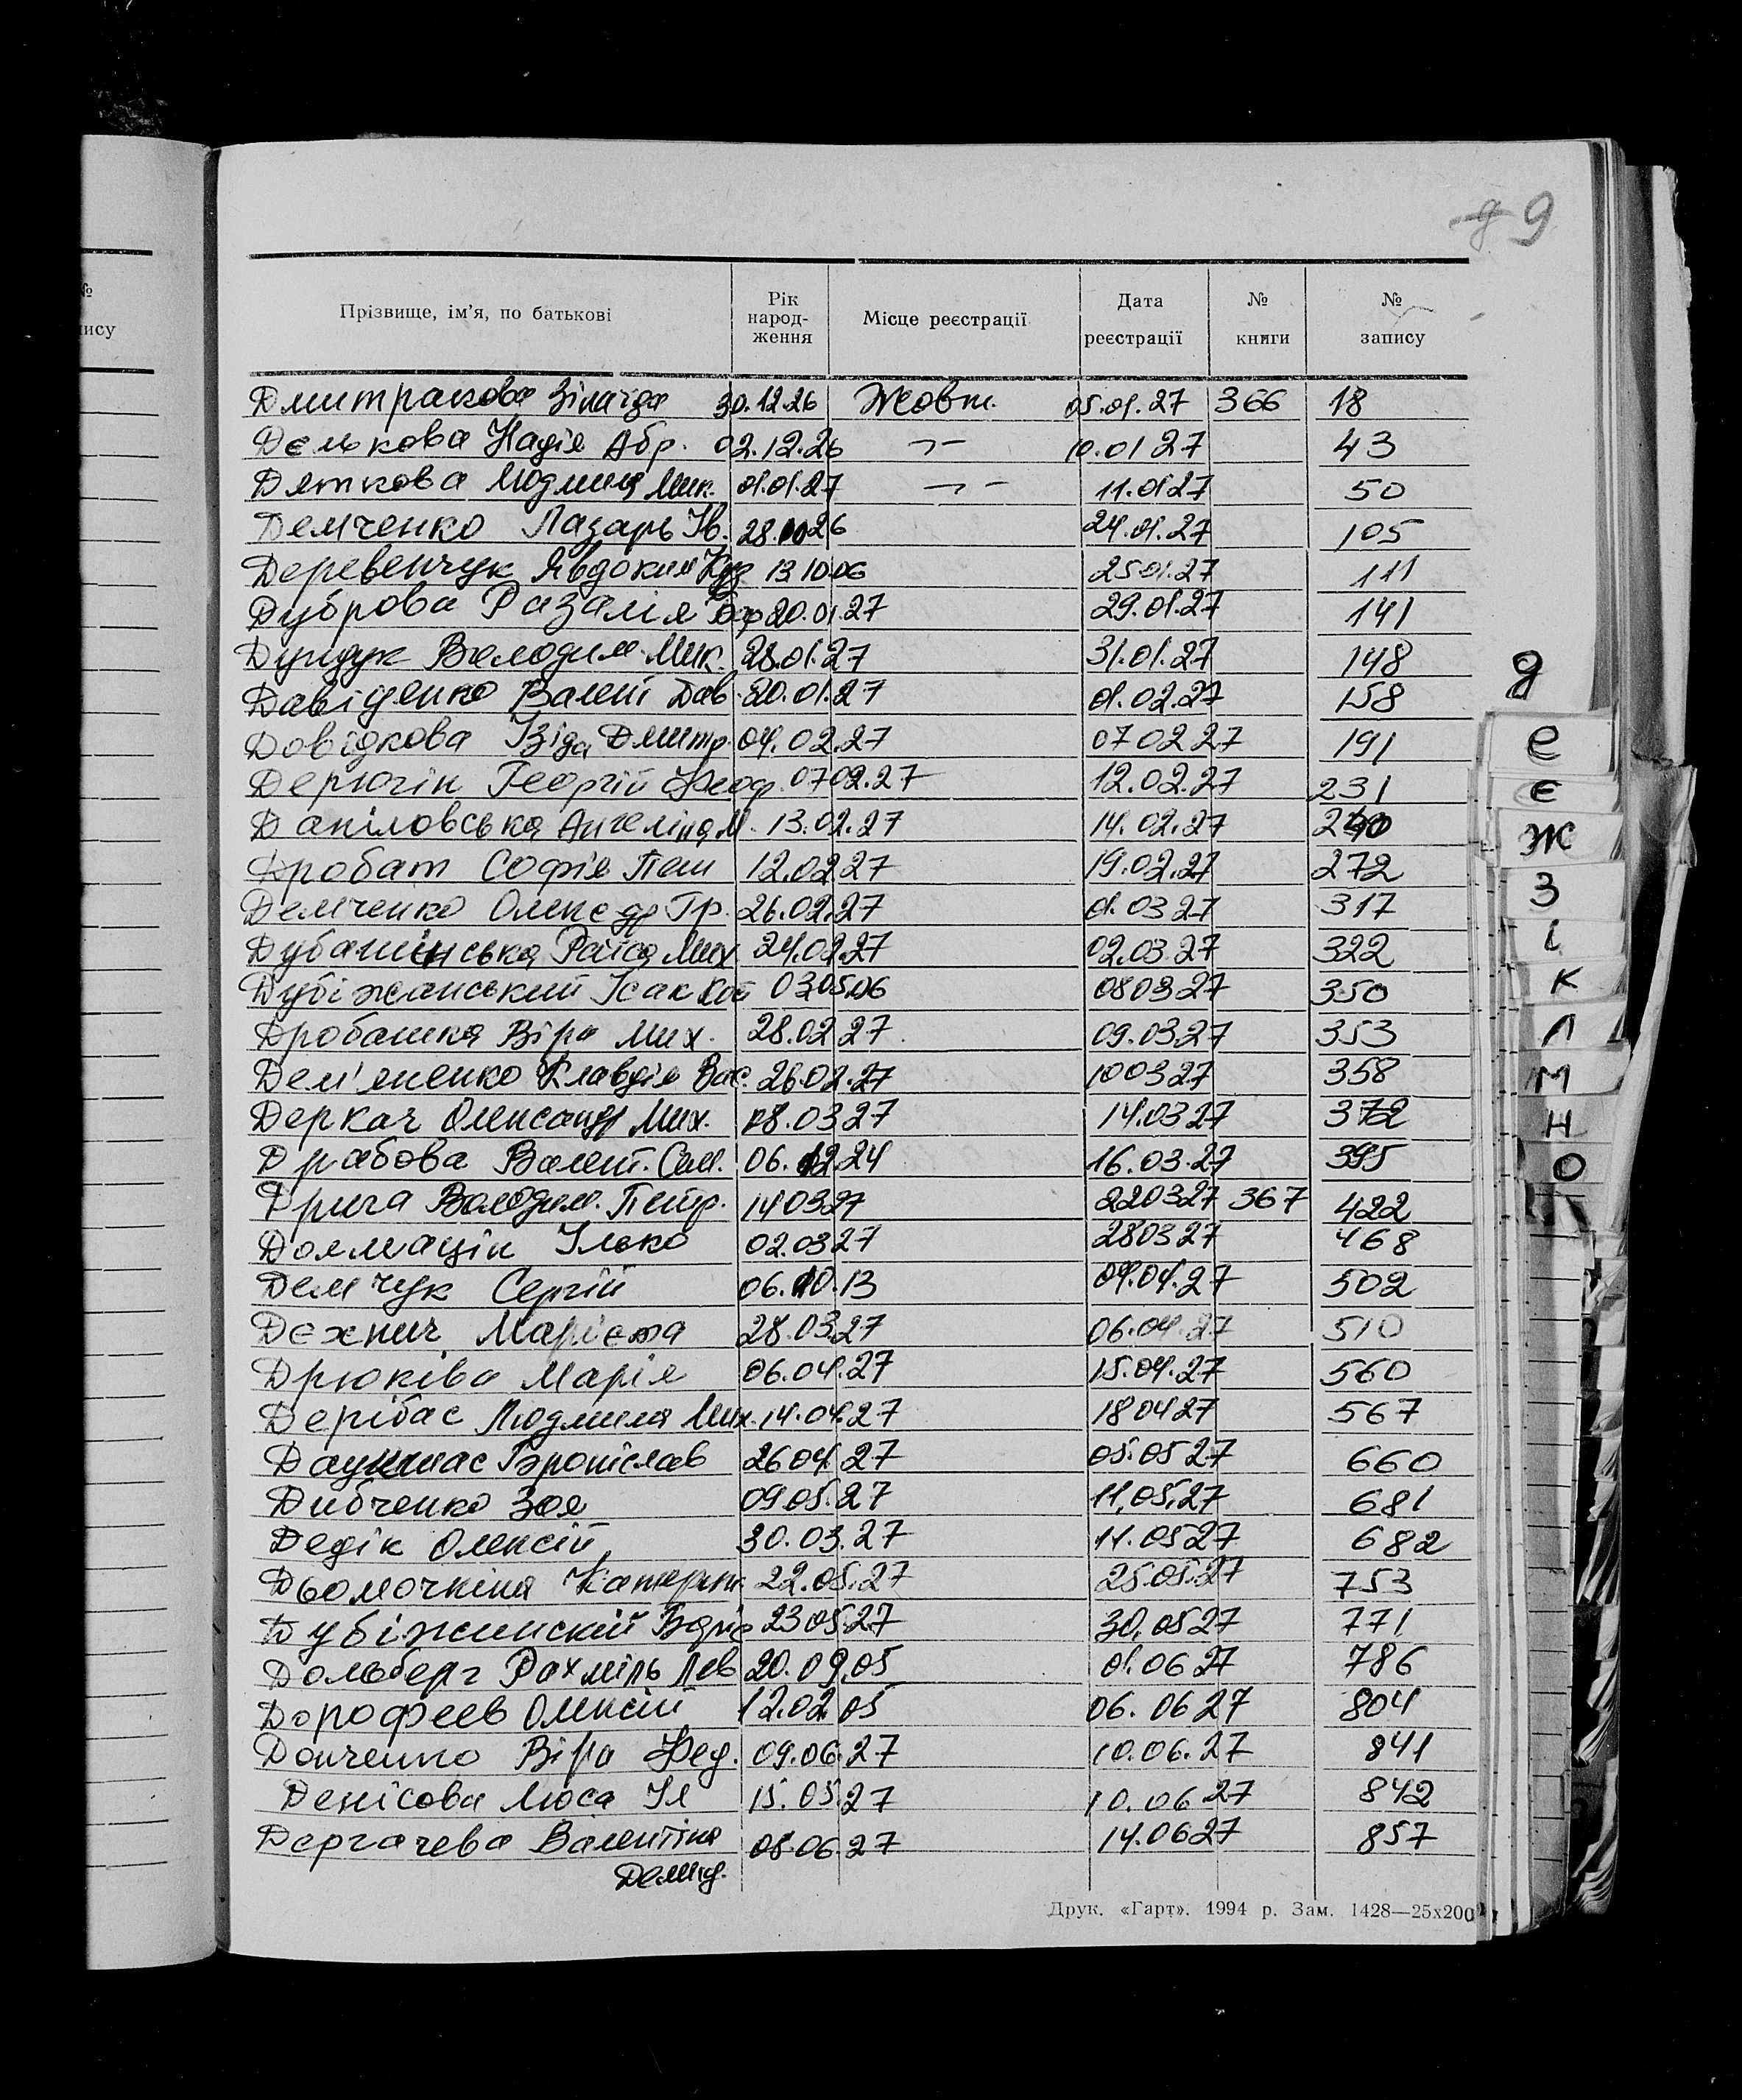 д 9
№
пису
Прізвище, ім'я, по батькові Рік народ-ження Місце реєстрації Дата реєстрації № книги № запису
Дмитракова Зінаїда 30.12.26 Жовт. 05.01.27 366 18
Дєлькова Надія Абр. 02.12.26 -"- 10.01 27 43
Дяткова Людмила Мик. 01.01.27 -"- 11.01 27 50
Демченко Лазарь Ів. 28.10 26 24.01.27 105
Деревенчук Явдоким 13 10.06 25.01.27 111
Дуброва Разалія 20.01.27 29.01.27 141
Дундук Володим. Мик. 28.01.27 31.01.27 148
Давіденко Валент Дав. 20.01.27 01.02.27 158
Довідкова Ізіда Дмитр. 04.02.27 07 02 27 191
Дерюгін Георгій Феод. 07 02.27 12.02.27 231
Даніловська Ангеліна М. 13.02.27 14.02.27 240
Дробат Софія 12.02 27 19.02.27 272
Демченко Олександр Гр. 26.02.27 01.03 27 317
Дубашинська Раїса Мих 24.02.27 02.03.27 322
Дубіжанський Ісак 03.05.06 08 03 27 350
Дробашка Віра Мих. 28.02 27 09.03.27 353
Дем'яненко Клавдія Вас. 26.02.27 10 03 27 358
Деркач Олександр Мих. 08.03 27 14.03 27 372
Драбова Валент. Сем. 06.12.24 16.03.27 395
Дрига Володим. Петр. 14 03 27 22 03 27 367 422
Долмацін Ілько 02.03 27 28 03 27 468
Демчук Сергій 06.10.13 04.04.27 502
Дєхнич Марієта 28.03.27 06.04.27 510
Дрюківа Марія 06.04.27 15.04.27 560
Дерібас Людмила Мих. 14.04.27 18 04 27 567
Броніслав 26 04 27 05.05 27 660
Дибченко Зоя 09 05.27 11.05.27 681
Дедік Олексій 30.03.27 11.05 27 682
Дьомочкіна Катерин 22.05.27 25.05.27 753
Дубіжинскій Борис 23 05.27 30.05 27 771
Дольберг Рахміль Лев 20.09.05 01.06 27 786
Дорофеев Олексій 12.02.05 06.06 27 804
Донченко Віра Фед. 09.06.27 10.06.27 841
Денісова Люса Іл 15.05.27 10.06 27 842
Дергачева Валентіна 08.06.27 14.06 27 857
Демид.
Друк. «Гарт». 1994 р. Зам. 1428—25х200
д
е
є
ж
з
і
к
л
м
н
о